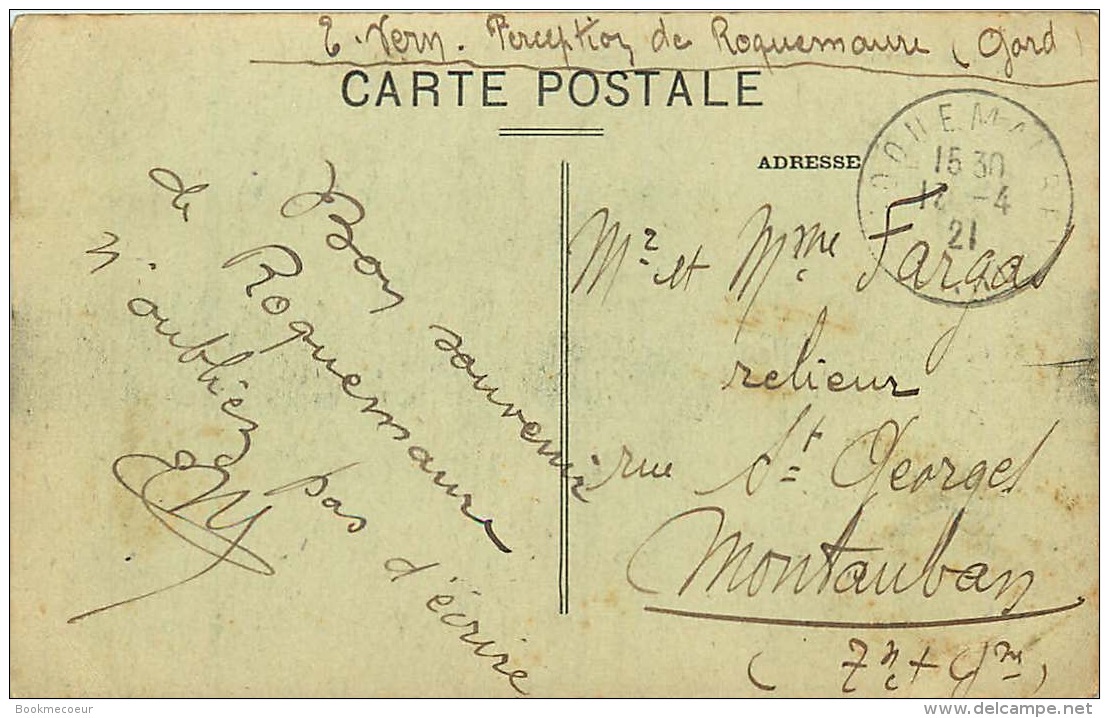 E. Vern. Perception de Roquemaure (Gard)
CARTE POSTALE
ADRESSE
15 30
-4
21
Bon souvenir
de Roquemaure
n'oubliez pas d'écrire
EV
Mr et Mme Fargas
relieur
rue St Georges
Montauban
(Tn et Gne)
Bookmecoeur
www.delcampe.net